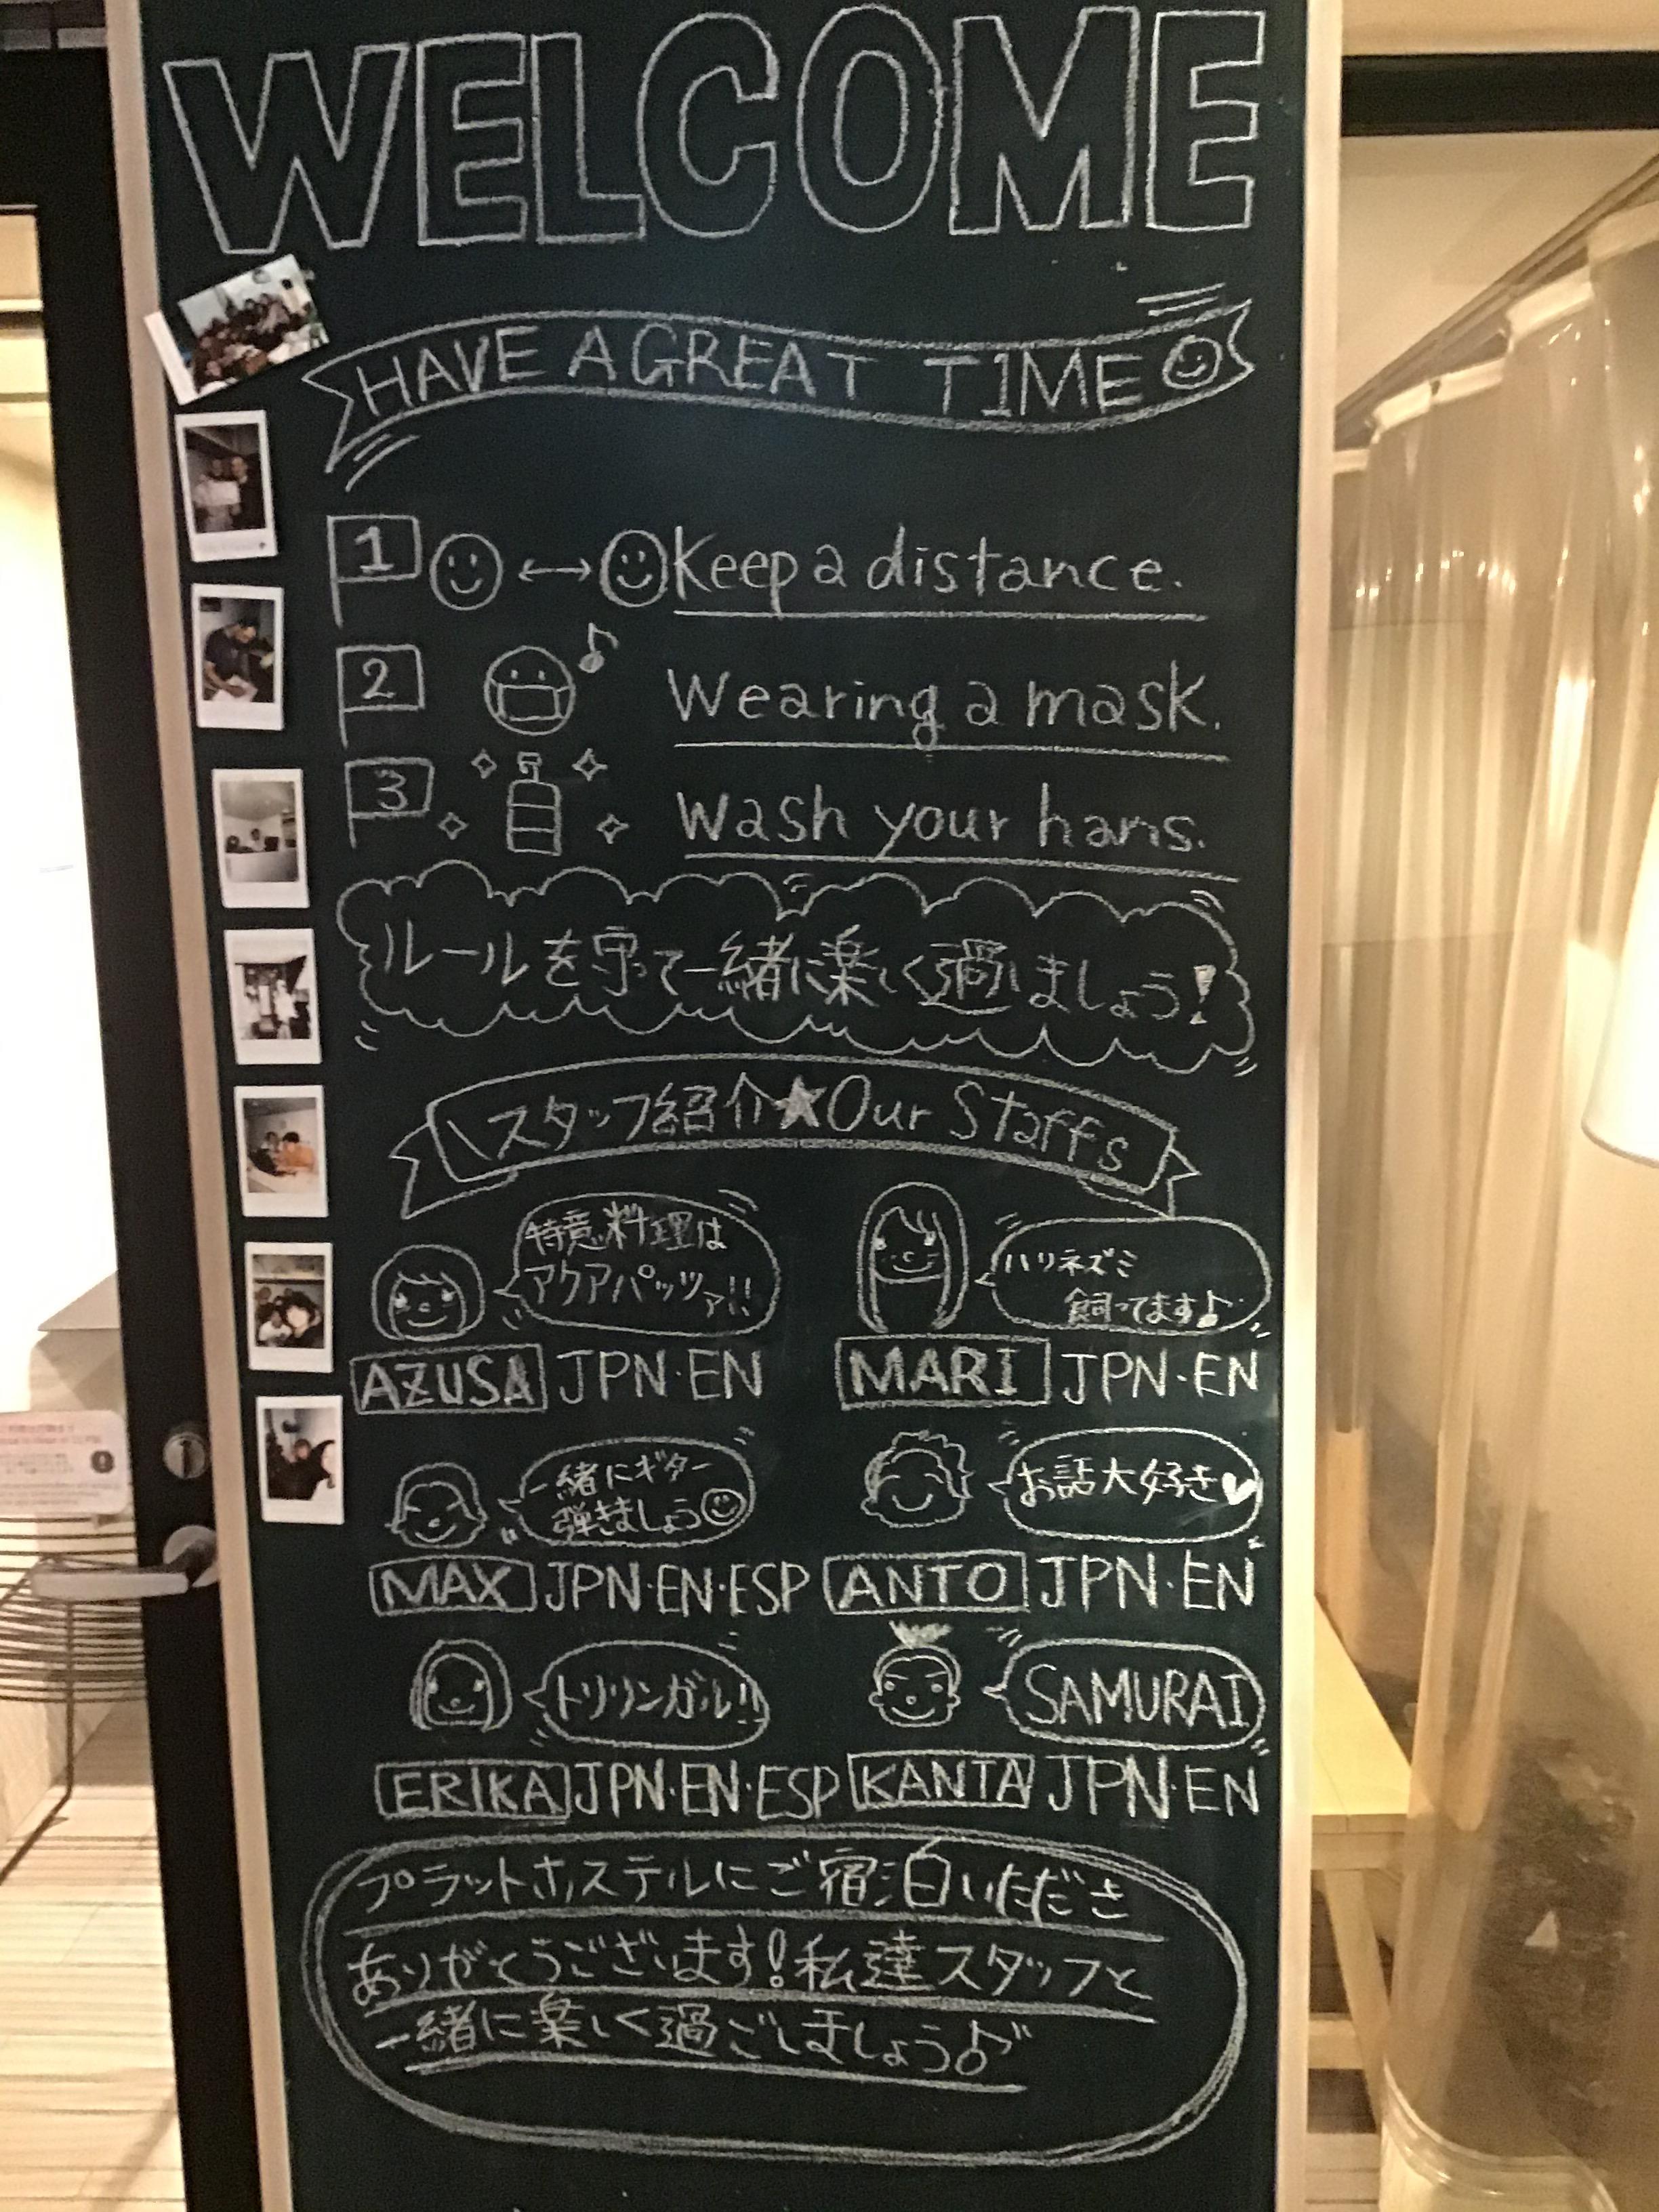 WELCOME
HAVE A GREAT TIME
1 Keep a distance.
2 Wearing a mask.
3 Wash your hans.
ルールを守って一緒に楽しく過しましょう!
\スタッフ紹介★Our Staffs
特意料理は
アクアパッツァ!!
AZUSA JPN・EN
ハリネズミ
飼ってます♪
MARI JPN・EN
一緒にギター
弾きましょう
MAX JPN・EN・ESP
お話大好き♥
ANTO JPN・EN
トリリンガル!!
ERIKA JPN・EN・ESP
SAMURAI
KANTA JPN・EN
プラットホステルにご宿泊いただき
ありがとうございます!私達スタッフと
一緒に楽しく過ごしましょう♪